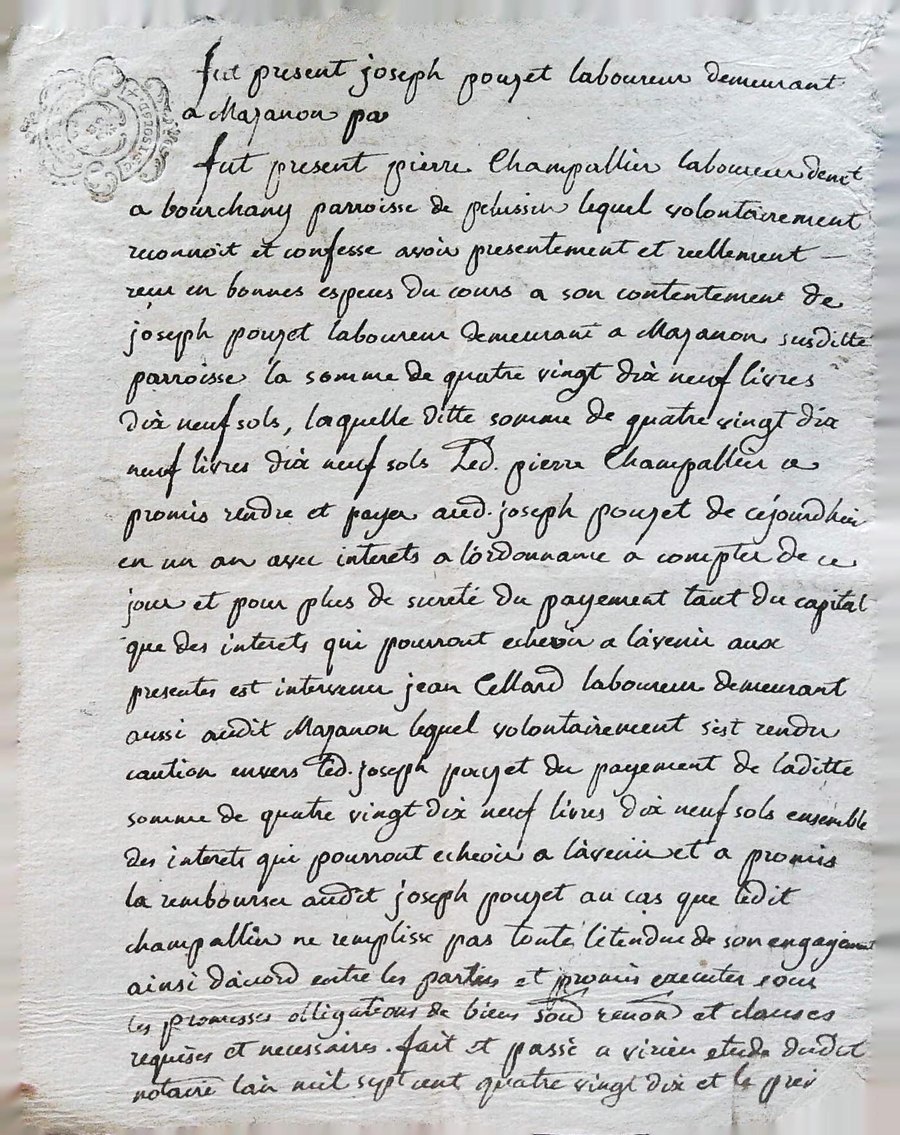 fut present joseph pouzet laboureur demeurant
a Mazanon pa
fut present pierre Champallier laboureur demt
a bourchany parroisse de pelussin lequel volontairement
reconnoit et confesse avoir presentement et reellement —
reçu en bonnes especes du cours a son contentement de
joseph pouzet laboureur demeurant a Mazanon susditte
parroisse la somme de quatre vingt dix neuf livres
dix neuf sols, laquelle ditte somme de quatre vingt dix
neuf livres dix neuf sols led. pierre Champallier a
promis rendre et payer aud. joseph pouzet de cejourdhui
en un an avec interets a l'ordonnance a compter de ce
jour et pour plus de sureté du payement tant du capital
que des interets qui pourront echeoir a l'avenir aux
presentes est intervenu jean Cellard laboureur demeurant
aussi audit Mazanon lequel volontairement s'est rendu
caution envers led. joseph pouzet du payement de laditte
somme de quatre vingt dix neuf livres dix neuf sols ensemble
des interets qui pourront echeoir a l'avenir et a promis
la rembourser audit joseph pouzet au cas que ledit
champallier ne remplisse pas toute l'etendue de son engagement
ainsi d'acord entre les parties et promis executer sous
les promesses obligations de biens renon et clauses
requises et necessaires. fait et passé a virieu etude dudit
notaire l'an mil sept cent quatre vingt dix et le